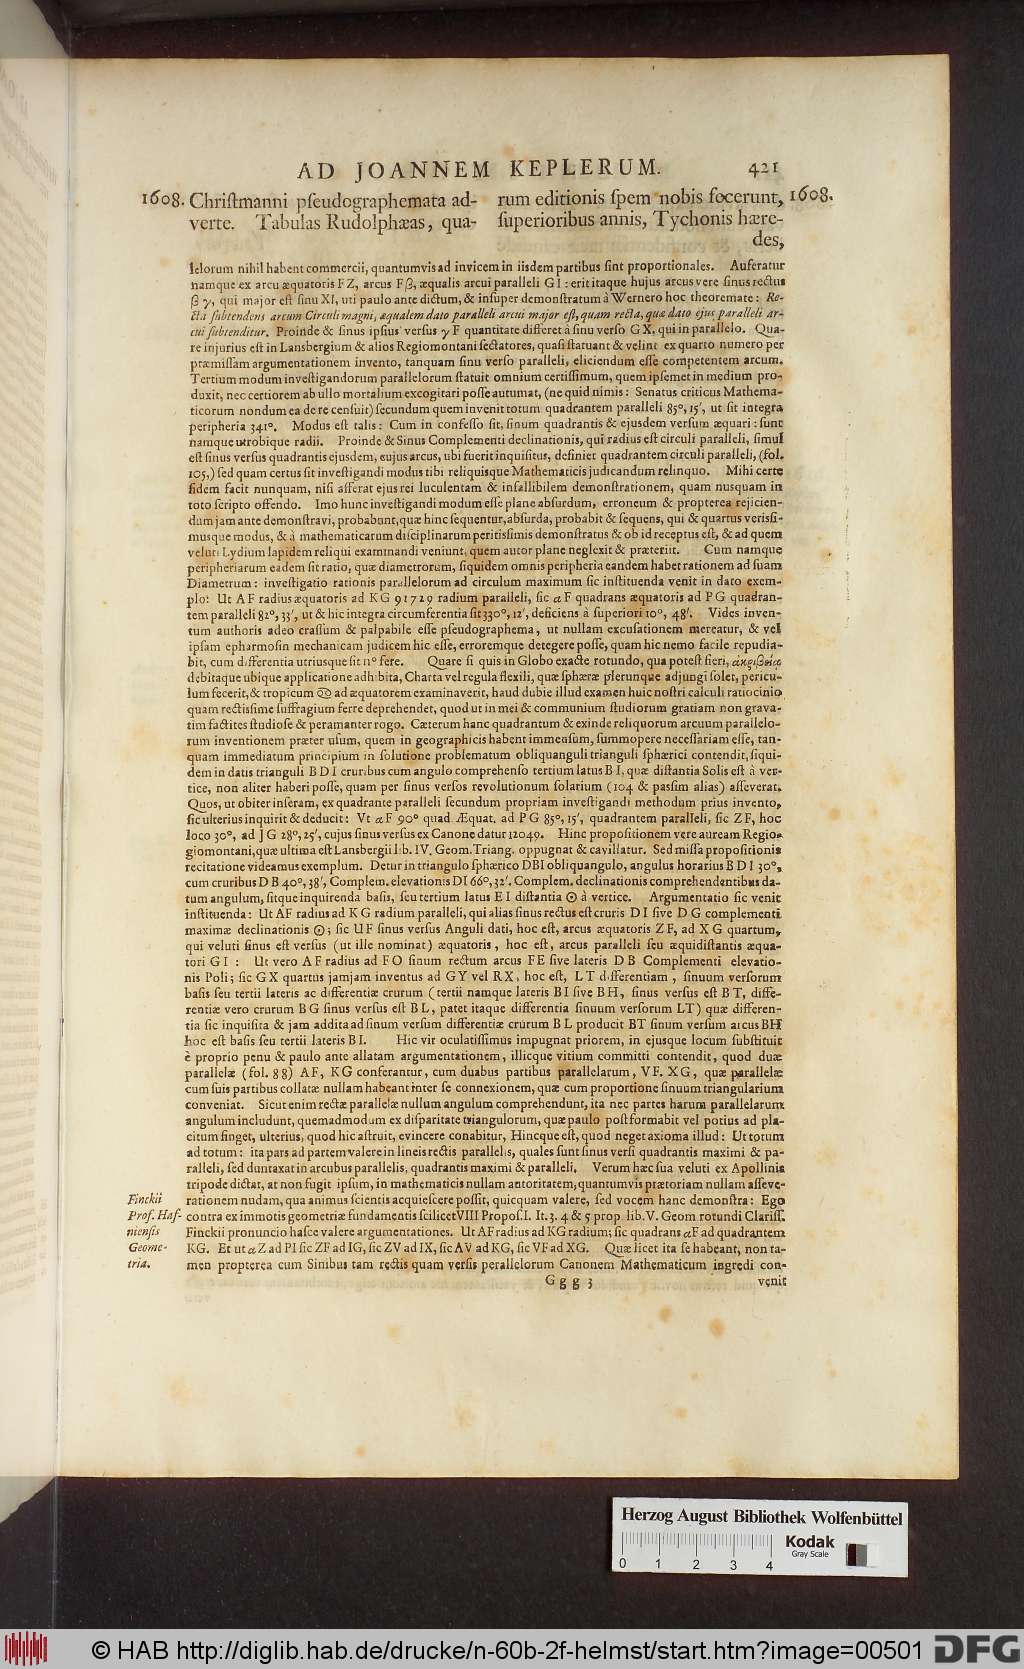 AD JOANNEM KEPLERUM. 421
1608. Chriſtmanni pſeudographemata ad-
verte. Tabulas Rudolphæas, qua-
rum editionis ſpem nobis fecerunt, 1608.
ſuperioribus annis, Tychonis hære-
des,
lelorum nihil habent commercii, quantumvis ad invicem in iisdem partibus ſint proportionales. Auferatur
namque ex arcu æquatoris FZ, arcus Fβ, æqualis arcui paralleli GI: erit itaque hujus arcus vere ſinus rectus
βγ, qui major eſt ſinu XI, uti paulo ante dictum, & inſuper demonſtratum à Wernero hoc theoremate: Re-
cta ſubtendens arcum Circuli magni, æqualem dato paralleli arcui major eſt, quam recta, quæ dato ejus paralleli ar-
cui ſubtenditur. Proinde & ſinus ipſius verſus γF quantitate differet à ſinu verſo GX, qui in parallelo. Qua-
re injurius eſt in Lansbergium & alios Regiomontani ſectatores, quaſi ſtatuant & velint ex quarto numero per
præmiſſam argumentationem invento, tanquam ſinu verſo paralleli, eliciendum eſſe competentem arcum.
Tertium modum inveſtigandorum parallelorum ſtatuit omnium certiſſimum, quem ipſemet in medium pro-
duxit, nec certiorem ab ullo mortalium excogitari poſſe autumat, (ne quid nimis: Senatus criticus Mathema-
ticorum nondum ea de re cenſuit) ſecundum quem invenit totum quadrantem paralleli 85°, 15′, ut ſit integra
peripheria 341°. Modus eſt talis: Cum in confeſſo ſit, ſinum quadrantis & ejusdem verſum æquari: ſunt
namque utrobique radii. Proinde & Sinus Complementi declinationis, qui radius eſt circuli paralleli, ſimul
eſt ſinus verſus quadrantis ejusdem, cujus arcus, ubi fuerit inquiſitus, definiet quadrantem circuli paralleli, (fol.
105,) ſed quam certus ſit inveſtigandi modus tibi reliquisque Mathematicis judicandum relinquo. Mihi certe
fidem facit nunquam, niſi afferat ejus rei luculentam & infallibilem demonſtrationem, quam nusquam in
toto ſcripto offendo. Imo hunc inveſtigandi modum eſſe plane abſurdum, erroneum & propterea rejicien-
dum jam ante demonſtravi, probabunt, quæ hinc ſequentur, abſurda, probabit & ſequens, qui & quartus veriſſi-
musque modus, & à mathematicarum diſciplinarum peritiſſimis demonſtratus & ob id receptus eſt, & ad quem
veluti Lydium lapidem reliqui examinandi veniunt, quem autor plane neglexit & præteriit. Cum namque
peripheriarum eadem ſit ratio, quæ diametrorum, ſiquidem omnis peripheria eandem habet rationem ad ſuam
Diametrum: inveſtigatio rationis parallelorum ad circulum maximum ſic inſtituenda venit in dato exem-
plo: Ut AF radius æquatoris ad KG 91729 radium paralleli, ſic αF quadrans æquatoris ad PG quadran-
tem paralleli 82°, 33′, ut & hic integra circumferentia ſit 330°, 12′, deficiens à ſuperiori 10°, 48′. Vides inven-
tum authoris adeo craſſum & palpabile eſſe pſeudographema, ut nullam excuſationem mereatur, & vel
ipſam epharmoſin mechanicam judicem hic eſſe, erroremque detegere poſſe, quam hic nemo facile repudia-
bit, cum differentia utriusque ſit 11° fere. Quare ſi quis in Globo exacte rotundo, qua poteſt fieri, ἀκριβείᾳ
debitaque ubique applicatione adhibita, Charta vel regula flexili, quæ ſphæræ plerunque adjungi ſolet, pericu-
lum fecerit, & tropicum ♋ ad æquatorem examinaverit, haud dubie illud examen huic noſtri calculi ratiocinio
quam rectiſſime ſuffragium ferre deprehendet, quod ut in mei & communium ſtudiorum gratiam non grava-
tim factites ſtudioſe & peramanter rogo. Cæterum hanc quadrantum & exinde reliquorum arcuum parallelo-
rum inventionem præter uſum, quem in geographicis habent immenſum, ſummopere neceſſariam eſſe, tan-
quam immediatum principium in ſolutione problematum obliquanguli trianguli ſphærici contendit, ſiqui-
dem in datis trianguli BDI cruribus cum angulo comprehenſo tertium latus BI, quæ diſtantia Solis eſt à ver-
tice, non aliter haberi poſſe, quam per ſinus verſos revolutionum ſolarium (104 & paſſim alias) aſſeverat.
Quos, ut obiter inſeram, ex quadrante paralleli ſecundum propriam inveſtigandi methodum prius invento,
ſic ulterius inquirit & deducit: Vt αF 90° quad. Æquat. ad PG 85°, 15′, quadrantem paralleli, ſic ZF, hoc
loco 30°, ad JG 28°, 25′, cujus ſinus verſus ex Canone datur 12049. Hinc propoſitionem vere auream Regio-
giomontani, quæ ultima eſt Lansbergii lib. IV. Geom. Triang. oppugnat & cavillatur. Sed miſſa propoſitionis
recitatione videamus exemplum. Detur in triangulo ſphærico DBI obliquangulo, angulus horarius BDI 30°,
cum cruribus DB 40°, 38′, Complem. elevationis DI 66°, 32′. Complem. declinationis comprehendentibus da-
tum angulum, ſitque inquirenda baſis, ſeu tertium latus EI diſtantia ☉ à vertice. Argumentatio ſic venit
inſtituenda: Ut AF radius ad KG radium paralleli, qui alias ſinus rectus eſt cruris DI ſive DG complementi
maximæ declinationis ☉; ſic UF ſinus verſus Anguli dati, hoc eſt, arcus æquatoris ZF, ad XG quartum,
qui veluti ſinus eſt verſus (ut ille nominat) æquatoris, hoc eſt, arcus paralleli ſeu æquidiſtantis æqua-
tori GI: Ut vero AF radius ad FO ſinum rectum arcus FE ſive lateris DB Complementi elevatio-
nis Poli; ſic GX quartus jamjam inventus ad GY vel RX, hoc eſt, LT differentiam, ſinuum verſorum
baſis ſeu tertii lateris ac differentiæ crurum (tertii namque lateris BI ſive BH, ſinus verſus eſt BT, diffe-
rentiæ vero crurum BG ſinus verſus eſt BL, patet itaque differentia ſinuum verſorum LT) quæ differen-
tia ſic inquiſita & jam addita ad ſinum verſum differentiæ crurum BL producit BT ſinum verſum arcus BH
hoc eſt baſis ſeu tertii lateris BI. Hic vir oculatiſſimus impugnat priorem, in ejusque locum ſubſtituit
è proprio penu & paulo ante allatam argumentationem, illicque vitium committi contendit, quod duæ
parallelæ (fol. 88) AF, KG conferantur, cum duabus partibus parallelarum, VF. XG, quæ parallelæ
cum ſuis partibus collatæ nullam habeant inter ſe connexionem, quæ cum proportione ſinuum triangularium
conveniat. Sicut enim rectæ parallelæ nullum angulum comprehendunt, ita nec partes harum parallelarum
angulum includunt, quemadmodum ex diſparitate triangulorum, quæ paulo poſt formabit vel potius ad pla-
citum finget, ulterius, quod hic aſtruit, evincere conabitur, Hincque eſt, quod neget axioma illud: Ut totum
ad totum: ita pars ad partem valere in lineis rectis parallelis, quales ſunt ſinus verſi quadrantis maximi & pa-
ralleli, ſed duntaxat in arcubus parallelis, quadrantis maximi & paralleli. Verum hæc ſua veluti ex Apollinis
tripode dictat, at non fugit ipſum, in mathematicis nullam autoritatem, quantumvis prætoriam nullam aſſeve-
rationem nudam, qua animus ſcientis acquieſcere poſſit, quicquam valere, ſed vocem hanc demonſtra: Ego
contra ex immotis geometriæ fundamentis ſcilicet VIII Propoſ. I. It. 3. 4 & 5 prop. lib. V. Geom rotundi Clariſſ.
Finckii pronuncio haſce valere argumentationes. Ut AF radius ad KG radium; ſic quadrans αF ad quadrantem
KG. Et ut αZ ad PI ſic ZF ad IG, ſic ZV ad IX, ſic AV ad KG, ſic VF ad XG. Quæ licet ita ſe habeant, non ta-
men propterea cum Sinibus tam rectis quam verſis perallelorum Canonem Mathematicum ingredi con-
Finckii
Prof. Haf-
nienſis
Geome-
tria.
Gggg 3 venit
Herzog August Bibliothek Wolfenbüttel
Kodak
Gray Scale
0 1 2 3 4
© HAB http://diglib.hab.de/drucke/n-60b-2f-helmst/start.htm?image=00501 DFG